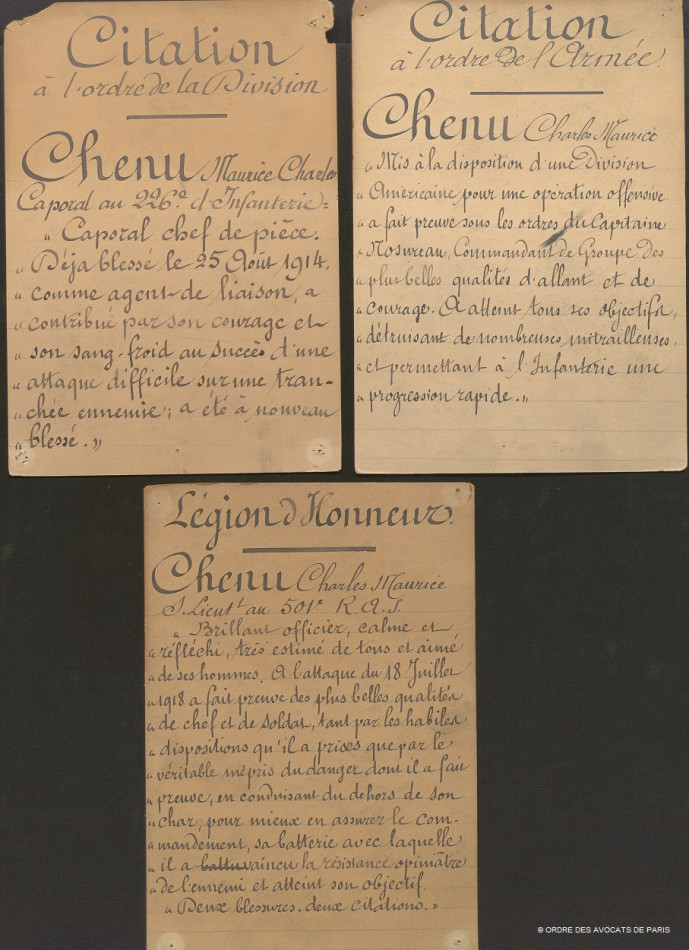 Citation
à l'ordre de la Division
Chenu Maurice Charles
Caporal au 226e d'Infanterie =
" Caporal chef de pièce.
" Déja blessé le 25 Août 1914.
" comme agent de liaison, a
" contribué par son courage et
" son sang-froid au succès d'une
" attaque difficile sur une tran-
" chée ennemie ; a été à nouveau
" blessé. "
Citation
à l'ordre de l'Armée.
Chenu Charles Maurice
" Mis à la disposition d'une Division
" Américaine pour une opération offensive
" a fait preuve sous les ordres du Capitaine
" Nosureau, Commandant de Groupe des
" plus belles qualités d'allant et de
" courage. A atteint tous ses objectifs,
" détruisant de nombreuses mitrailleuses.
" et permettant à l'Infanterie une
" progression rapide. "
Légion d'Honneur.
Chenu Charles Maurice
S. Lieutt au 501e R. A. S.
" Brillant officier, calme et
" réfléchi, très estimé de tous et aimé
" de ses hommes. A l'attaque du 18 Juillet
" 1918 a fait preuve des plus belles qualités
" de chef et de soldat, tant par les habiles
" dispositions qu'il a prises que par le
" véritable mépris du danger dont il a fait
" preuve, en conduisant du dehors de son
" char, pour mieux en assurer le com-
" mandement, sa batterie avec laquelle
" il a battu vaincu la résistance opiniâtre
" de l'ennemi et atteint son objectif.
" Deux blessures. deux citations. "
© ORDRE DES AVOCATS DE PARIS